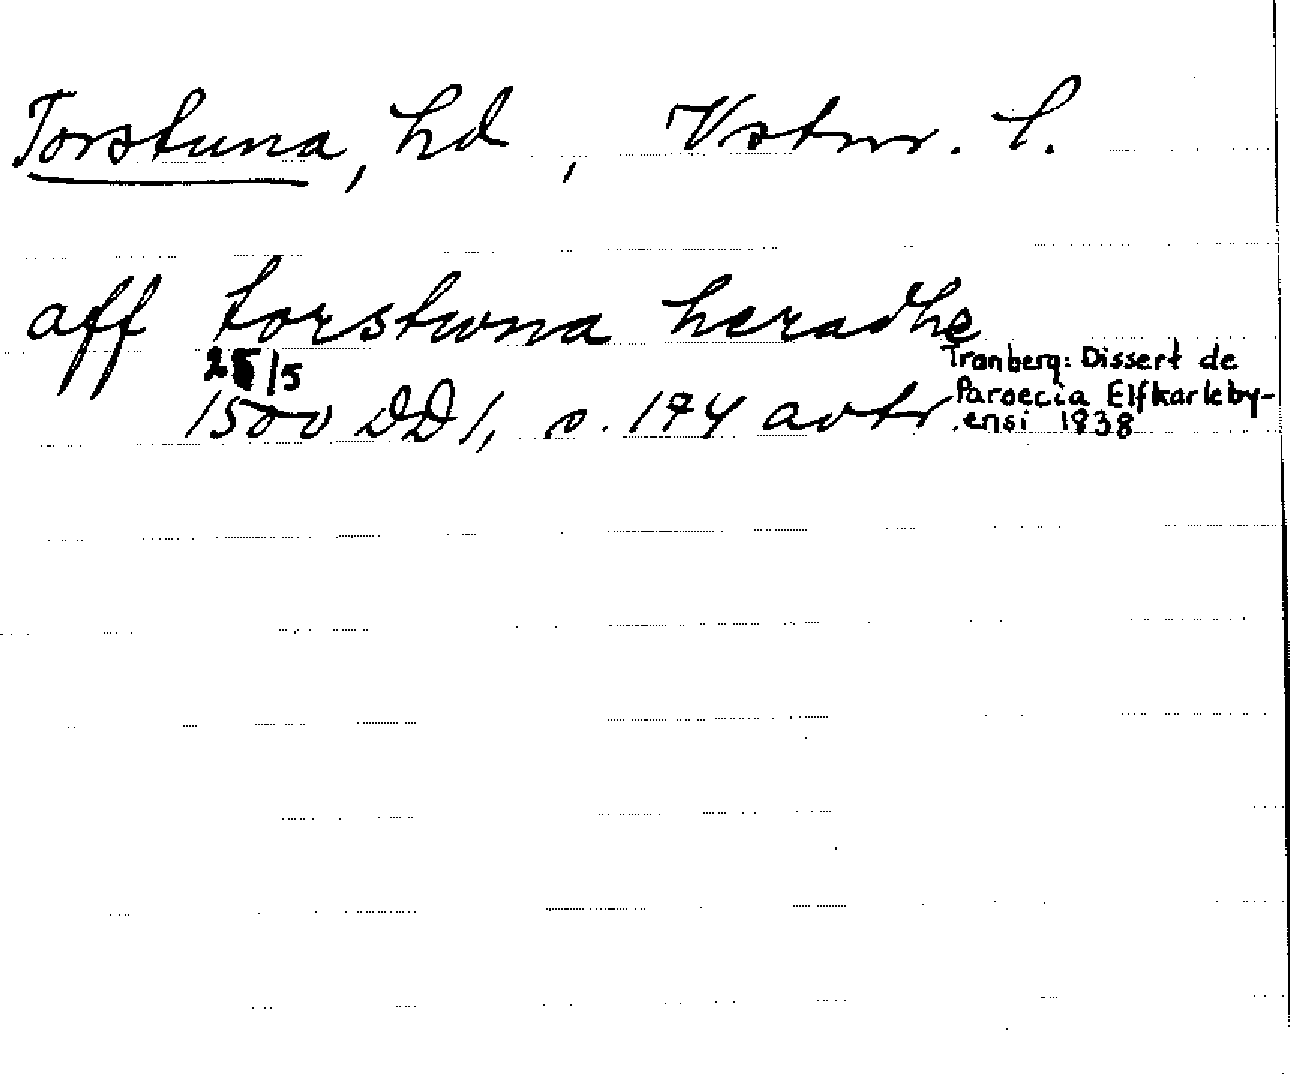 Torstuna, hd, Vstm. l.
aff torstwna heradhe
25/5
1500 DD1, s. 194 avtr
Tranberg: Dissert de
Paroecia Elfkarleby-
ensi 1838